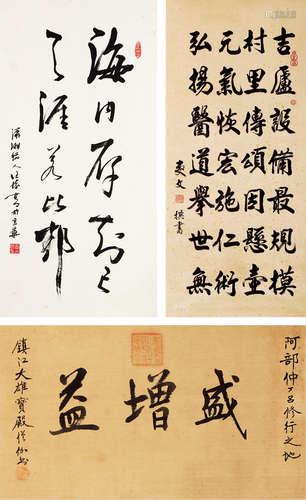 海内存知己
天涯若比鄰
瀟湘
吉廬設備最規模
村里傳頌囙懸壺
元氣恢宏施仁術
弘揚醫道舉世無
文 撰書
阿部仲 修行之地
盛增益
鎮江大雄寶殿